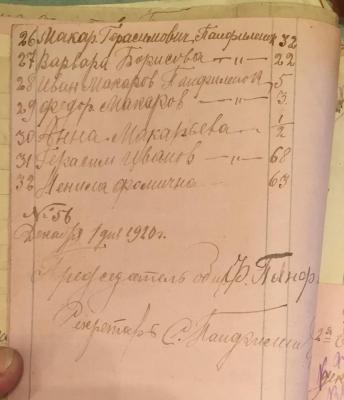 26 Макар Герасимович Панфиленок 32
27 Варвара Борисова -"- 22
28 Иван Макаров Панфиленок 5
29 Федор Макаров -"- 3
30 Анна Макарьева -"- 1/2
31 Герасим Иванов -"- 68
32 Фомична -"- 63
№ 56
Декабря 1 дня 1920 г.
Председатель общ
Секретарь С.